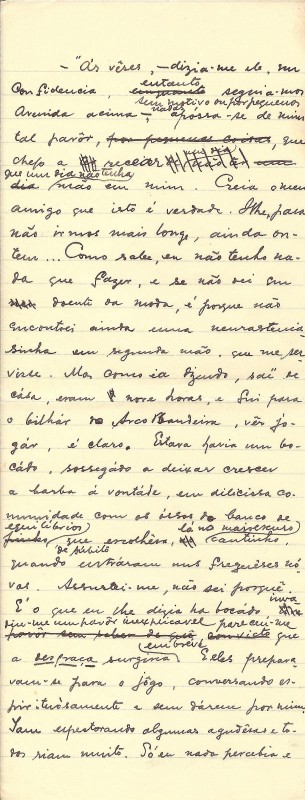 — "Ás vêses, — dizia-me ele, em
entanto
Confidencia, enquanto seguia-mos
sem motivo ou por pequenos
nadas
Avenida acima —, apossa-se de mim
tal pavôr, por pequenas coisas, que
chego a receiar
que um dia não tenha
dia mão em mim. Creia o meu
amigo que isto é verdade. Olhe, para
não irmos mais longe, ainda on-
tem... Como sabe, eu não tenho na-
da que fazer, e se não sei um
doente da moda, é porque não
encontrei ainda uma neurastenia-
sinha em segunda mão, que me ser-
visse. Mas como ia dizendo, saí de
cása, eram nove horas, e fui para
o bilhár do Arco Bandeira, vêr jo-
gár, é claro. Estava havia um bo-
cádo, sossegádo a deixar crescer
a barba á vontáde, em deliciosa co-
munidade com os óssos do banco de
equilibrios lá no mais escuso
pinho, que escolhêra, cantinho,
de súbito
quando entráram uns freguêses nó-
vos. Assustei-me, não sei porquê.
É o que eu lhe dizia ha bocádo
deu-me um pavôr inexplicavel pareceu-me
pavôr sem saber de quê, convicto que
em breve
a desgraça surgiria. Eles prepara-
vam-se para o jôgo, conversando es-
pirituósamente e sem dárem por mim.
Iam espectorando algumas agudêsas e to-
dos riam muito. Só eu nada percebia e